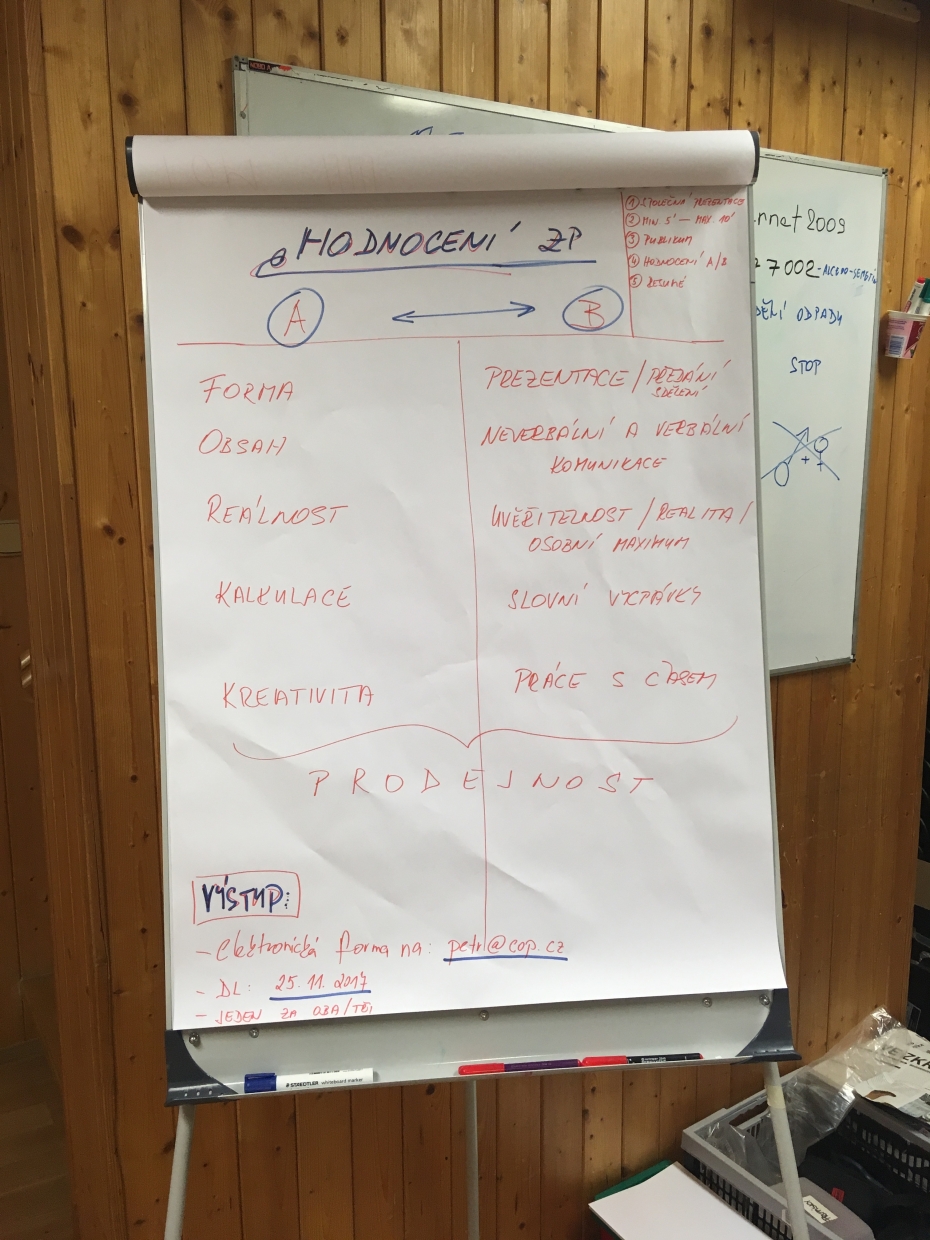 HODNOCENÍ ZP
A
B
① SPOLEČNÁ PREZENTACE
② MIN 5' – MAX. 10'
③ PUBLIKUM
④ HODNOCENÍ A/B
⑤ RESUMÉ
FORMA
PREZENTACE / PŘEDÁNÍ
SDĚLENÍ
OBSAH
NEVERBÁLNÍ A VERBÁLNÍ
KOMUNIKACE
REÁLNOST
UVĚŘITELNOST / REALITA /
OSOBNÍ MAXIMUM
KALKULACE
SLOVNÍ VYCPÁVKY
KREATIVITA
PRÁCE S ČASEM
PRODEJNOST
VÝSTUP:
- elektronická forma na: petr@cop.cz
- DL: 25. 11. 2017
- JEDEN ZA OBA/TŘI
2009
7002
ODPADY
STOP
STAEDTLER whiteboard marker